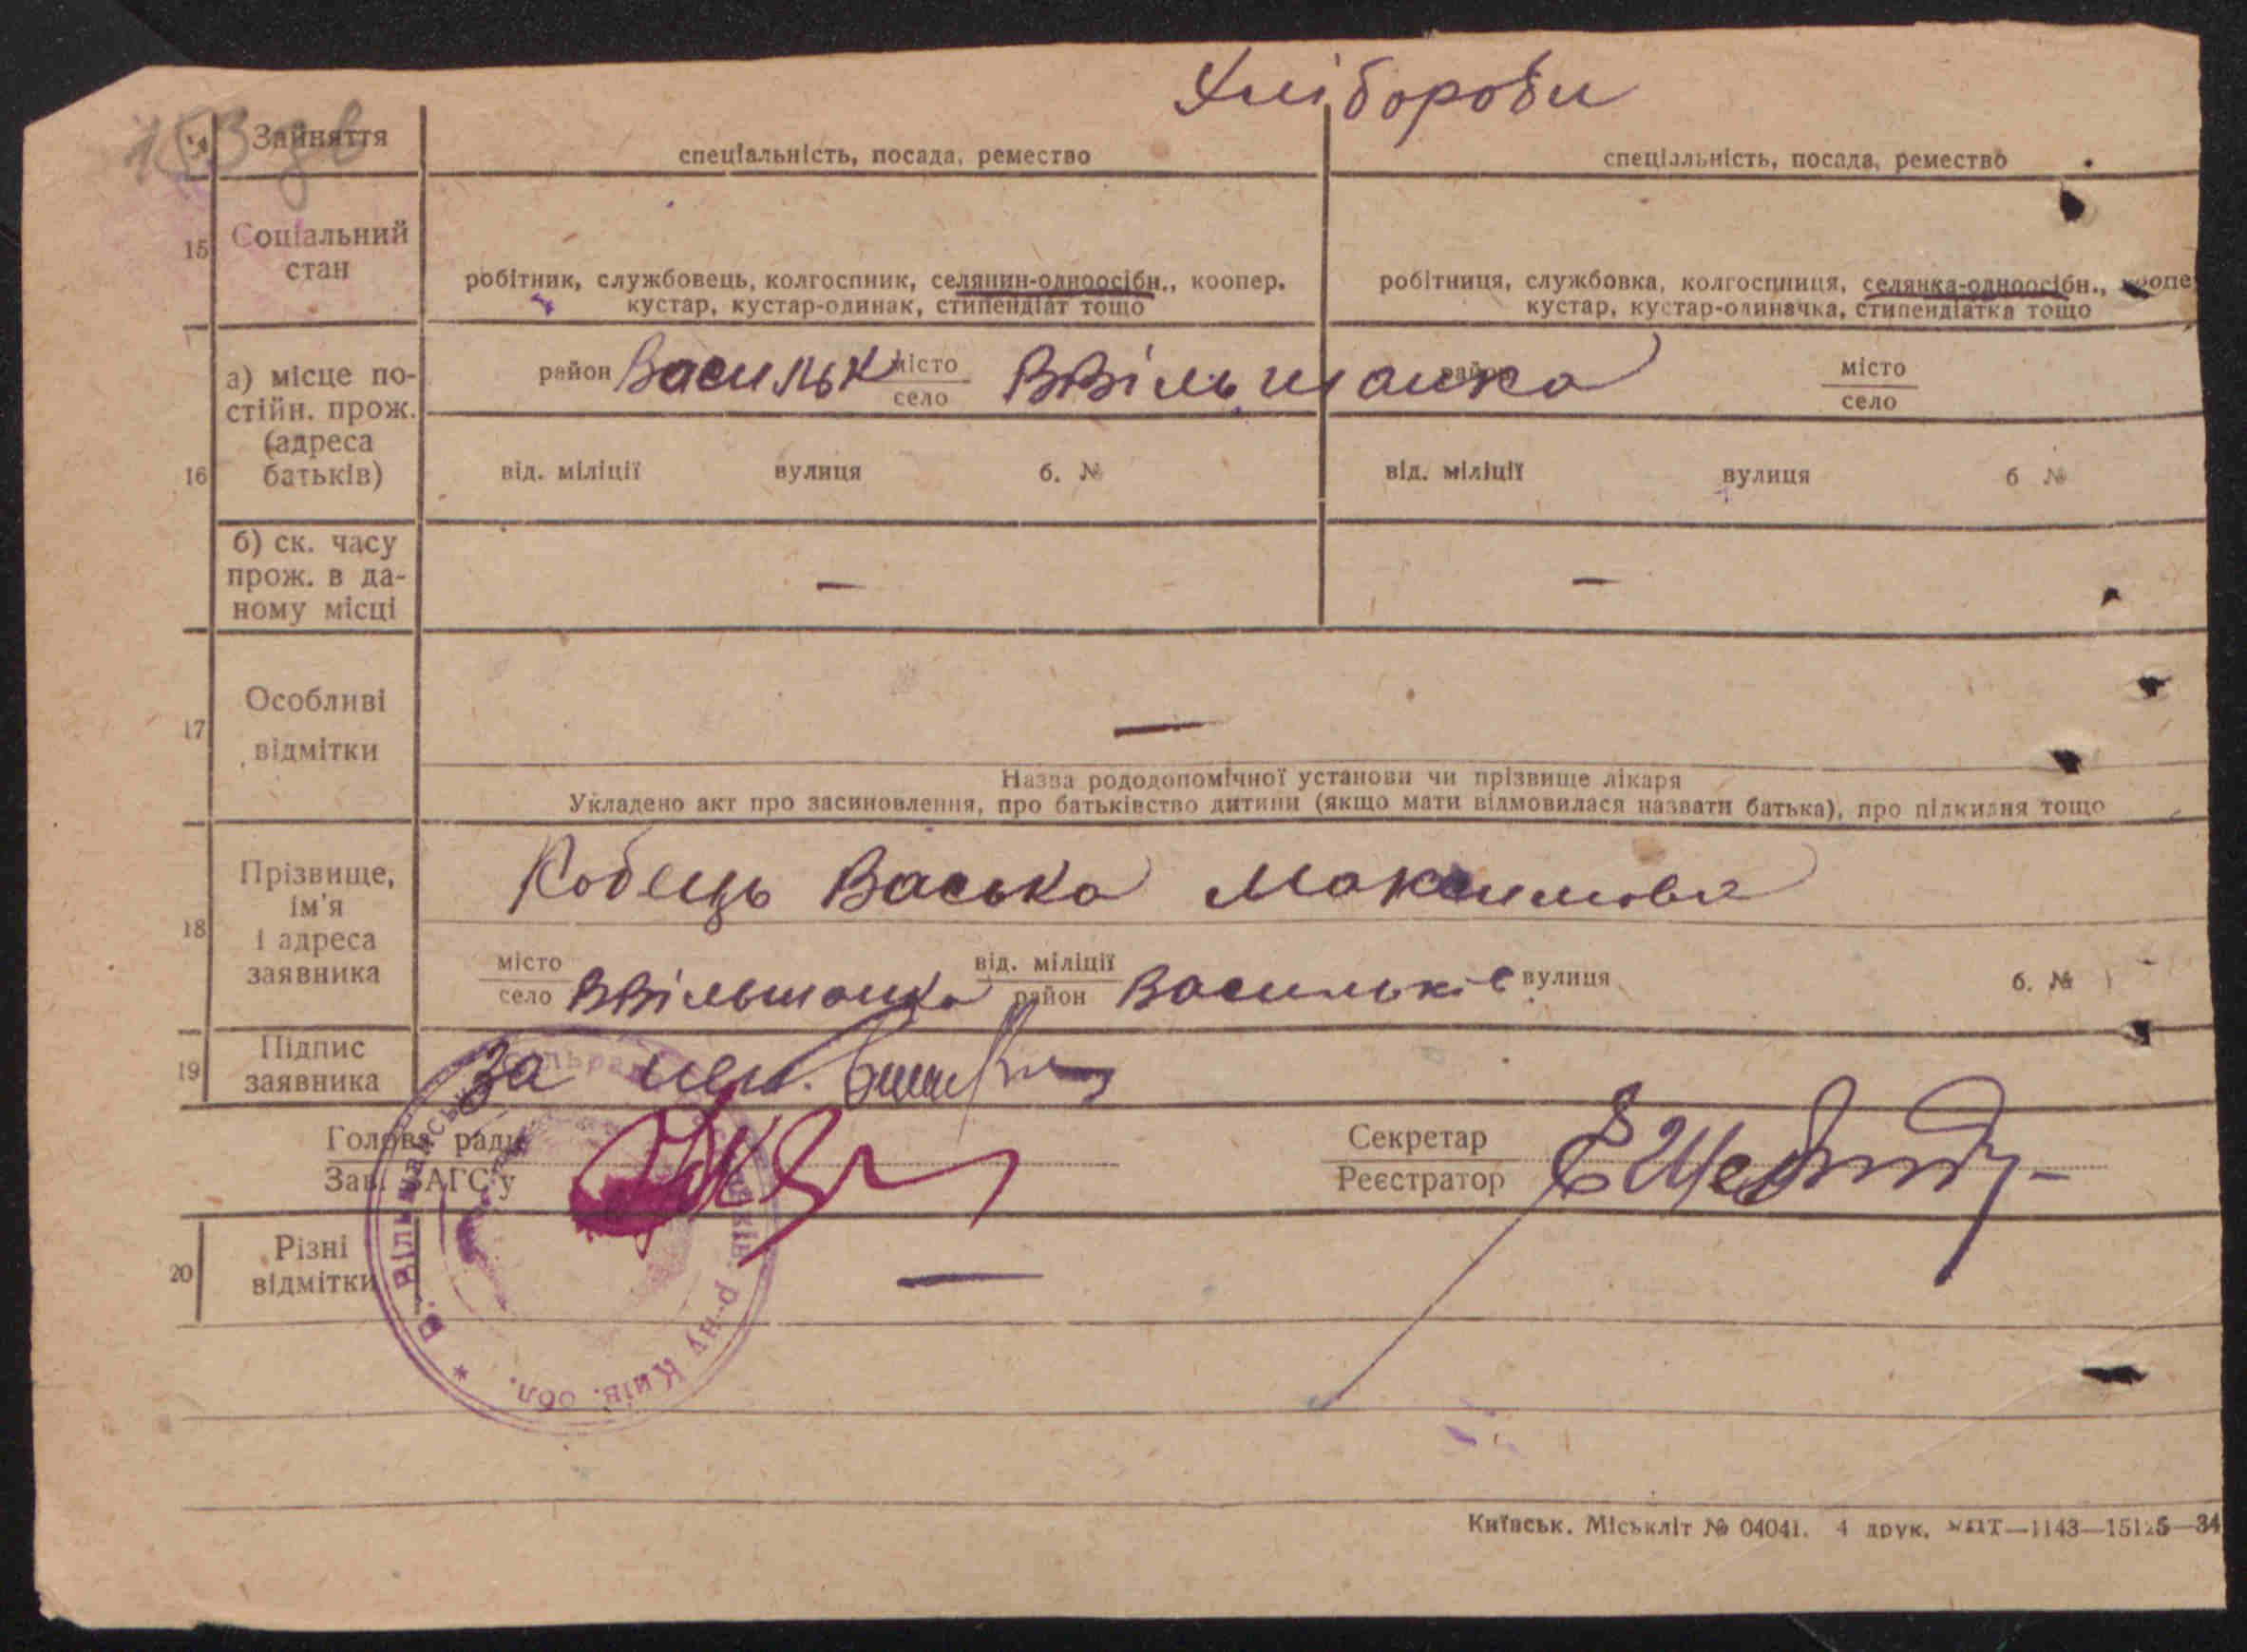 Хлібороби
153 зв
14 Зайняття
спеціальність, посада, ремество
спеціальність, посада, ремество
15 Соціальний стан
робітник, службовець, колгоспник, селянин-одноосібн., коопер.
кустар, кустар-одинак, стипендіат тощо
робітниця, службовка, колгоспниця, селянка-одноосібн., коопе
кустар, кустар-одиначка, стипендіатка тощо
16 а) місце по-
стійн. прож.
(адреса
батьків)
район Васильк місто
село ВВільшанка
район місто
село
від. міліції вулиця б. №
від. міліції вулиця б №
б) ск. часу
прож. в да-
ному місці
— —
17 Особливі
відмітки
—
Назва рододопомічної установи чи прізвище лікаря
Укладено акт про засиновлення, про батьківство дитини (якщо мати відмовилася назвати батька), про підкидня тощо
18 Прізвище,
ім'я
і адреса
заявника
Кобець Васька Максимова
місто
село ВВільшанка від. міліції
район Васильків вулиця б. №
19 Підпис
заявника
За
Голова ради
Зав. ЗАГС'у
Секретар
Реєстратор
20 Різні
відмітки
—
* В. Віль р-ну Київ. обл.
Київськ. Міськліт № 04041. 4 друк. —1143—15125—34